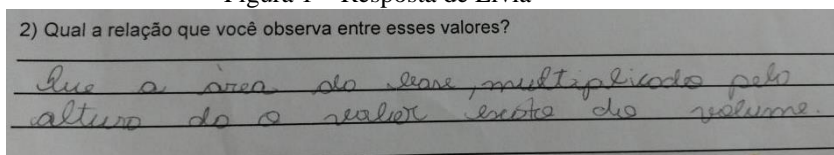 Figura 1 – Resposta de Lívia
2) Qual a relação que você observa entre esses valores?
Que a área do base, multiplicado pelo
altura do o valor exato do volume.